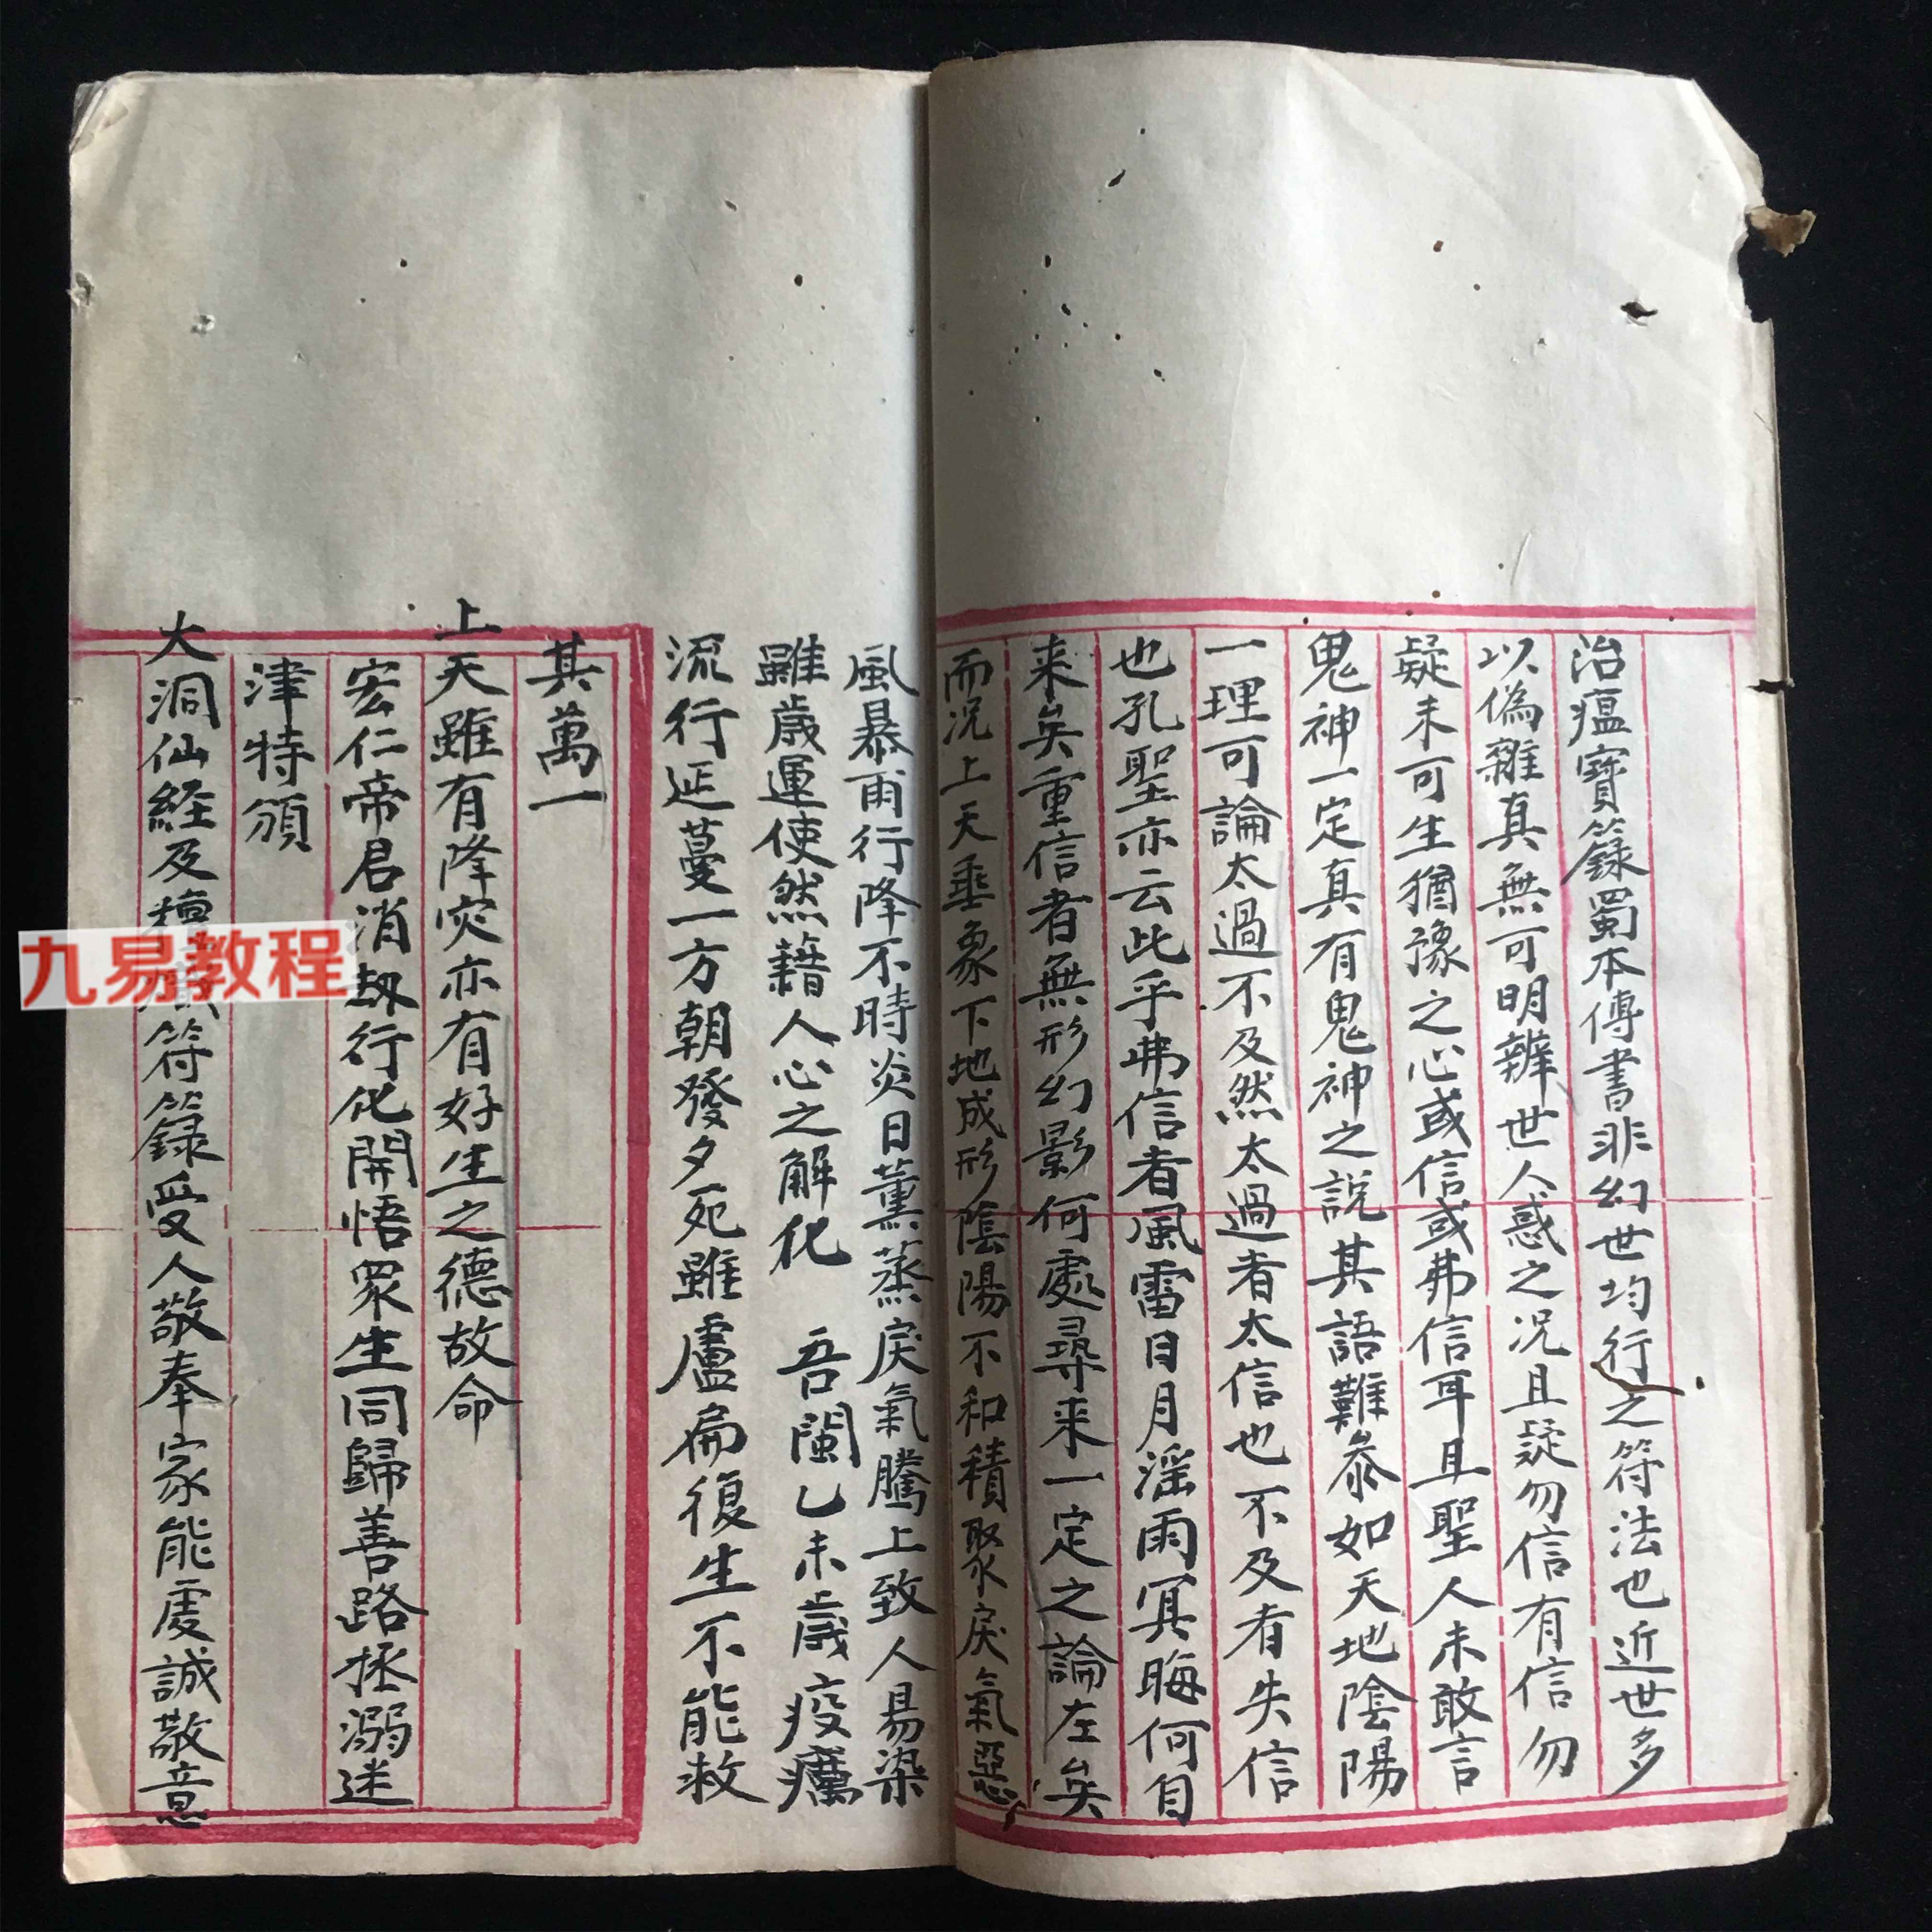 治瘟寶籙蜀本傳書非幻世均行之符法也近世多
以偽雜真無可明辨世人惑之况且疑勿信有信勿
疑未可生猶豫之心或信或弗信耳且聖人未敢言
鬼神一定真有鬼神之說其語難叅如天地陰陽
一理可論太過不及然太過者太信也不及者失信
也孔聖亦云此乎弗信者風雷日月淫雨冥晦何自
来矣重信者無形幻影何處尋来一定之論左矣
而况上天垂象下地成形陰陽不和積聚戾氣惡
風暴雨行降不時炎日薰蒸戾氣騰上致人易染
雖歲運使然藉人心之解化 吾閩乙未歲疫癘
流行延蔓一方朝發夕死雖盧扁復生不能救
其萬一
上天雖有降灾亦有好生之德故命
宏仁帝君消劫行化開悟眾生同歸善路拯溺迷
津特頒
大洞仙經及符籙受人敬奉家能虔誠敬意
九易教程